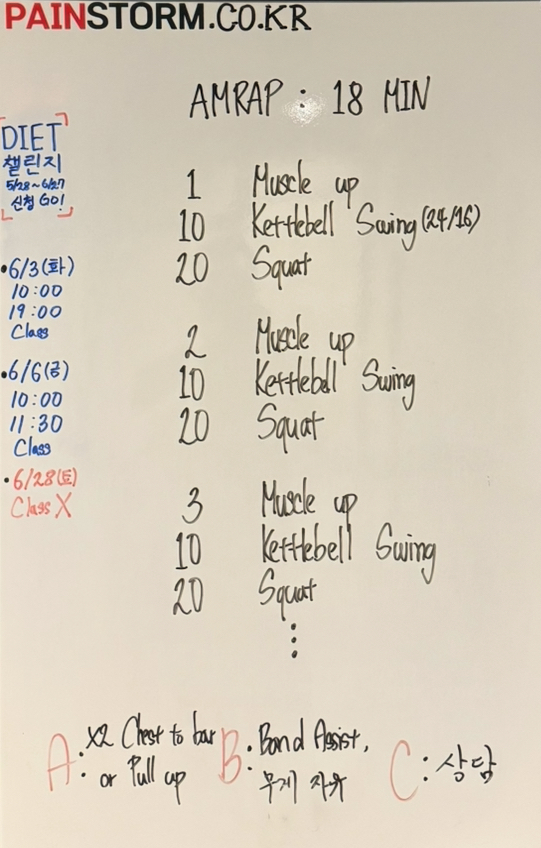 PAINSTORM.CO.KR
AMRAP : 18 MIN
DIET
챌린지
5/28~6/27
신청 GO!
•6/3(화)
10:00
19:00
Class
•6/6(금)
10:00
11:30
Class
•6/28(토)
Class X
1 Muscle up
10 Kettlebell Swing (24/16)
20 Squat
2 Muscle up
10 Kettlebell Swing
20 Squat
3 Muscle up
10 Kettlebell Swing
20 Squat
⋮
A: X2 Chest to bar
or Pull up
B: Band Assist,
무게 자유
C: 상담